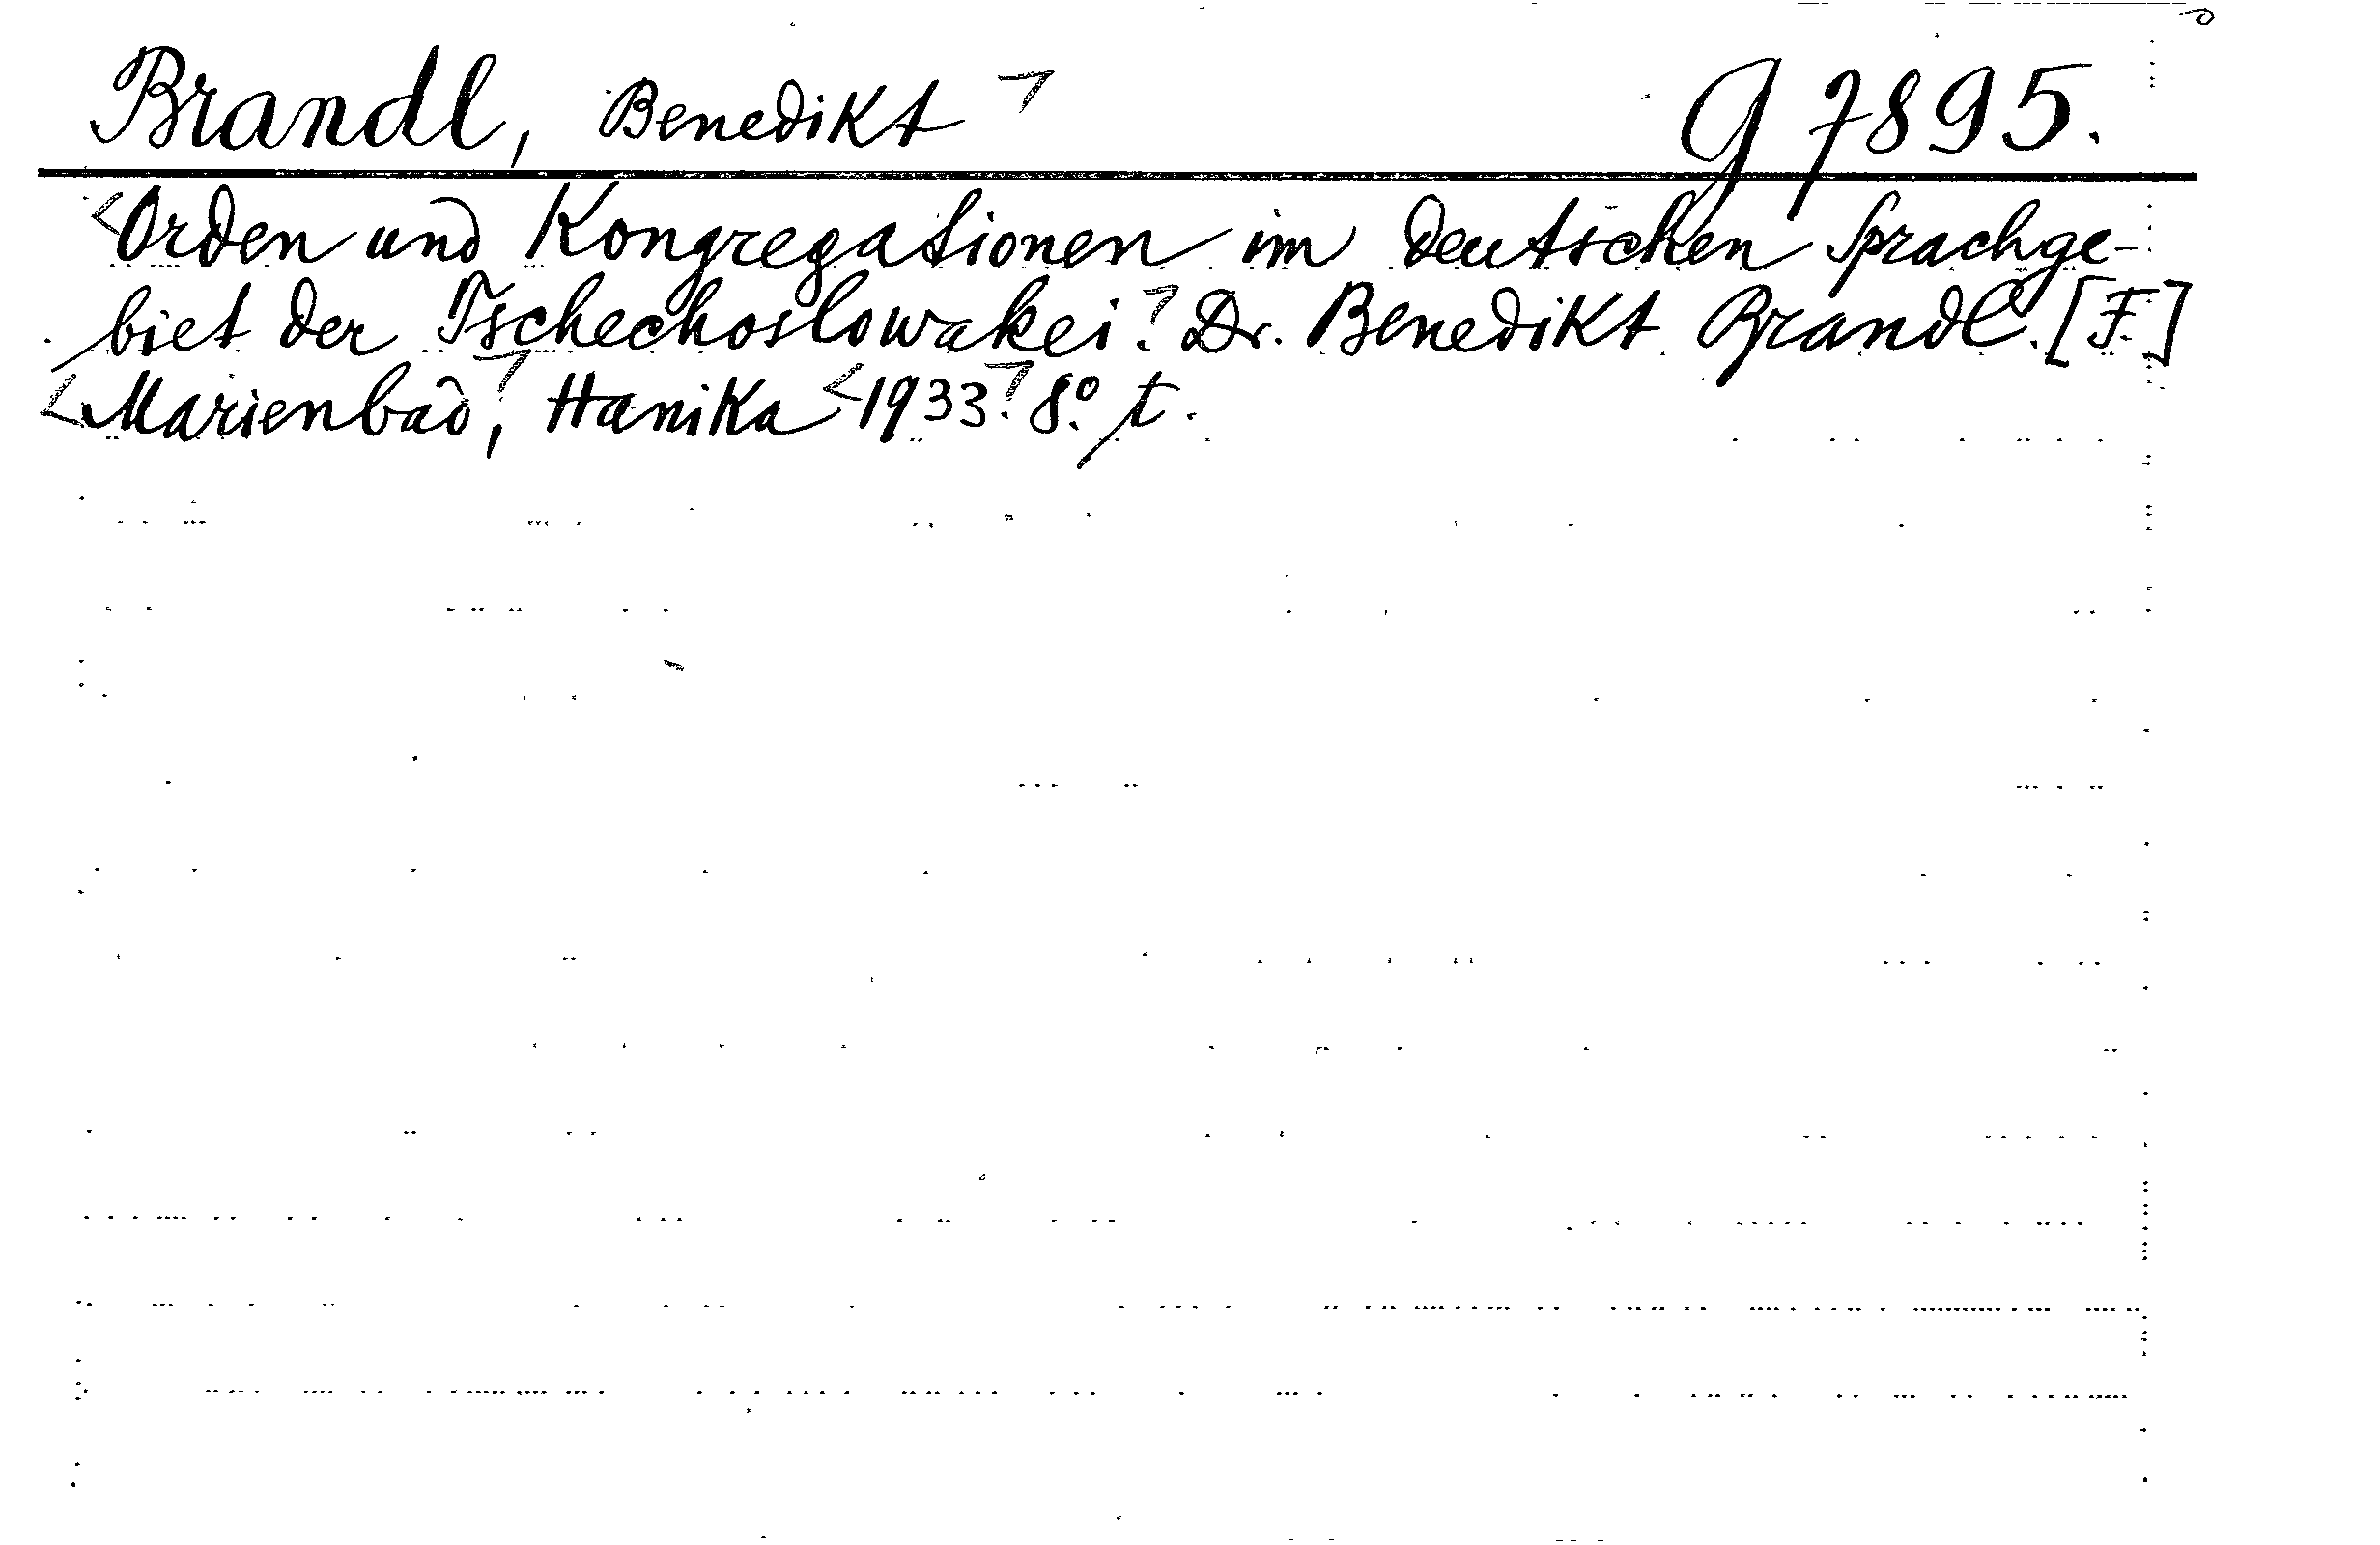 Brandl, Benedikt G 7895.
Orden und Kongregationen im deutschen Sprachge-
biet der Tschechoslowakei. Dr. Benedikt Brandl. [F.]
Marienbad, Hanika 1933. 8°. t.